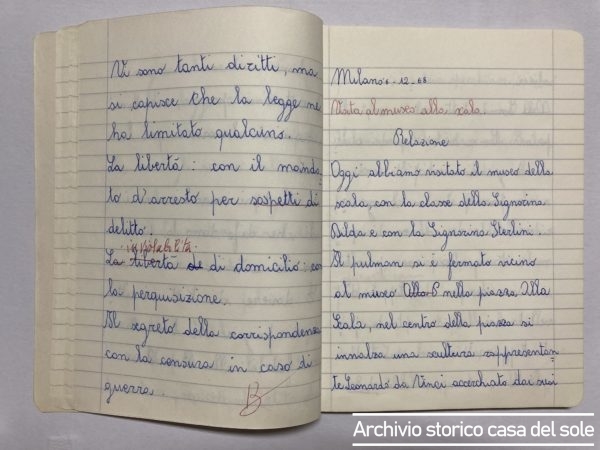 Vi sono tanti diritti, ma
si capisce che la legge ne
ha limitato qualcuno.
La libertá: con il manda
to d'arresto per sospetti di
delitto.
inviolabilitá
La libertá de di domicilio: con
la perquisizione.
Il segreto della corrispondenza
con la censura in caso di
guerra.
B
Milano 6-12-68
Visita al museo alla scala.
Relazione
Oggi abbiamo visitato il museo della
scala, con la classe della Signorina
Balda e con la Signorina Sterlini.
Il pulman si é fermato vicino
al museo Alla S nella piazza Alla
Scala, nel centro della piazza si
innalza una scultura rappresentan
te Leonardo da Vinci accerchiato dai suoi
Archivio storico casa del sole